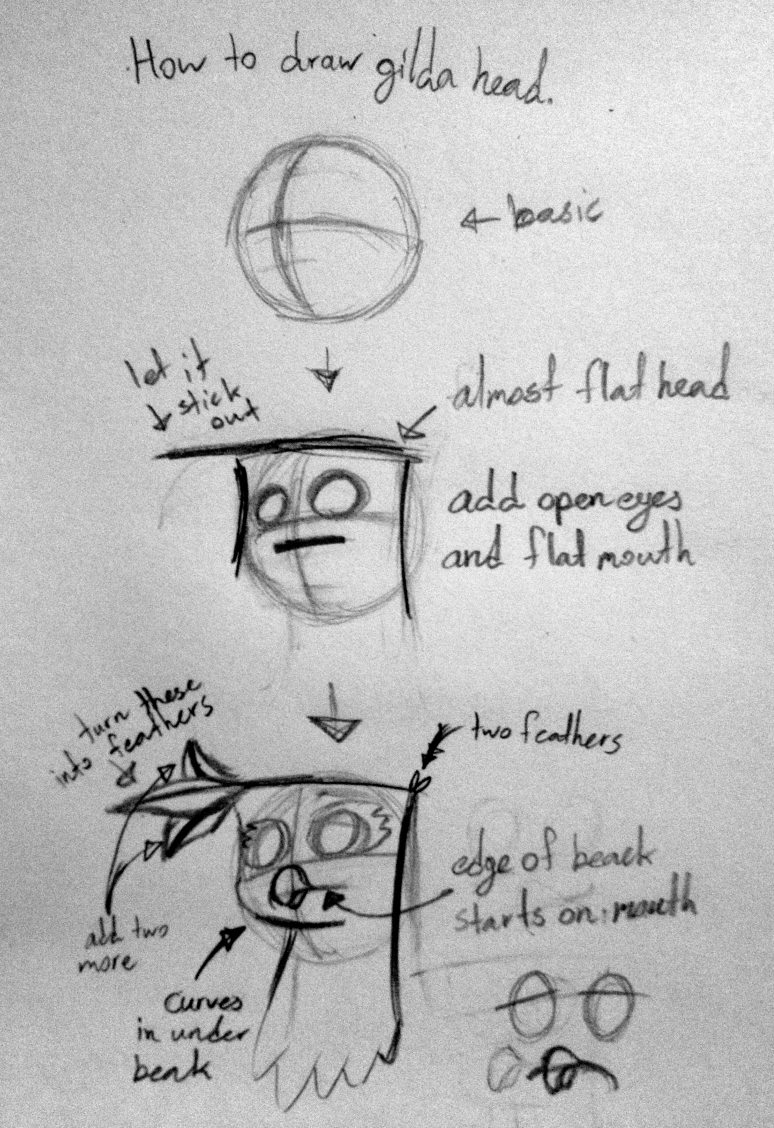 How to draw gilda head.
basic
let it
stick
out
almost flat head
add open eyes
and flat mouth
turn these
into feathers
two feathers
edge of beack
starts on mouth
add two
more
curves
in under
beak